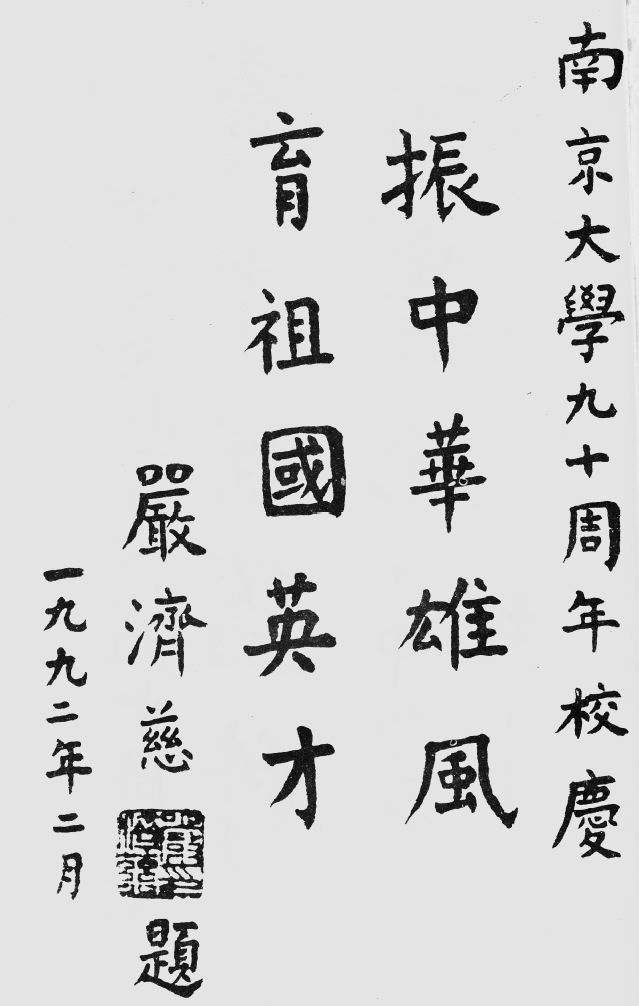 南京大學九十周年校慶
振中華雄風
育祖國英才
嚴濟慈題
一九九二年二月